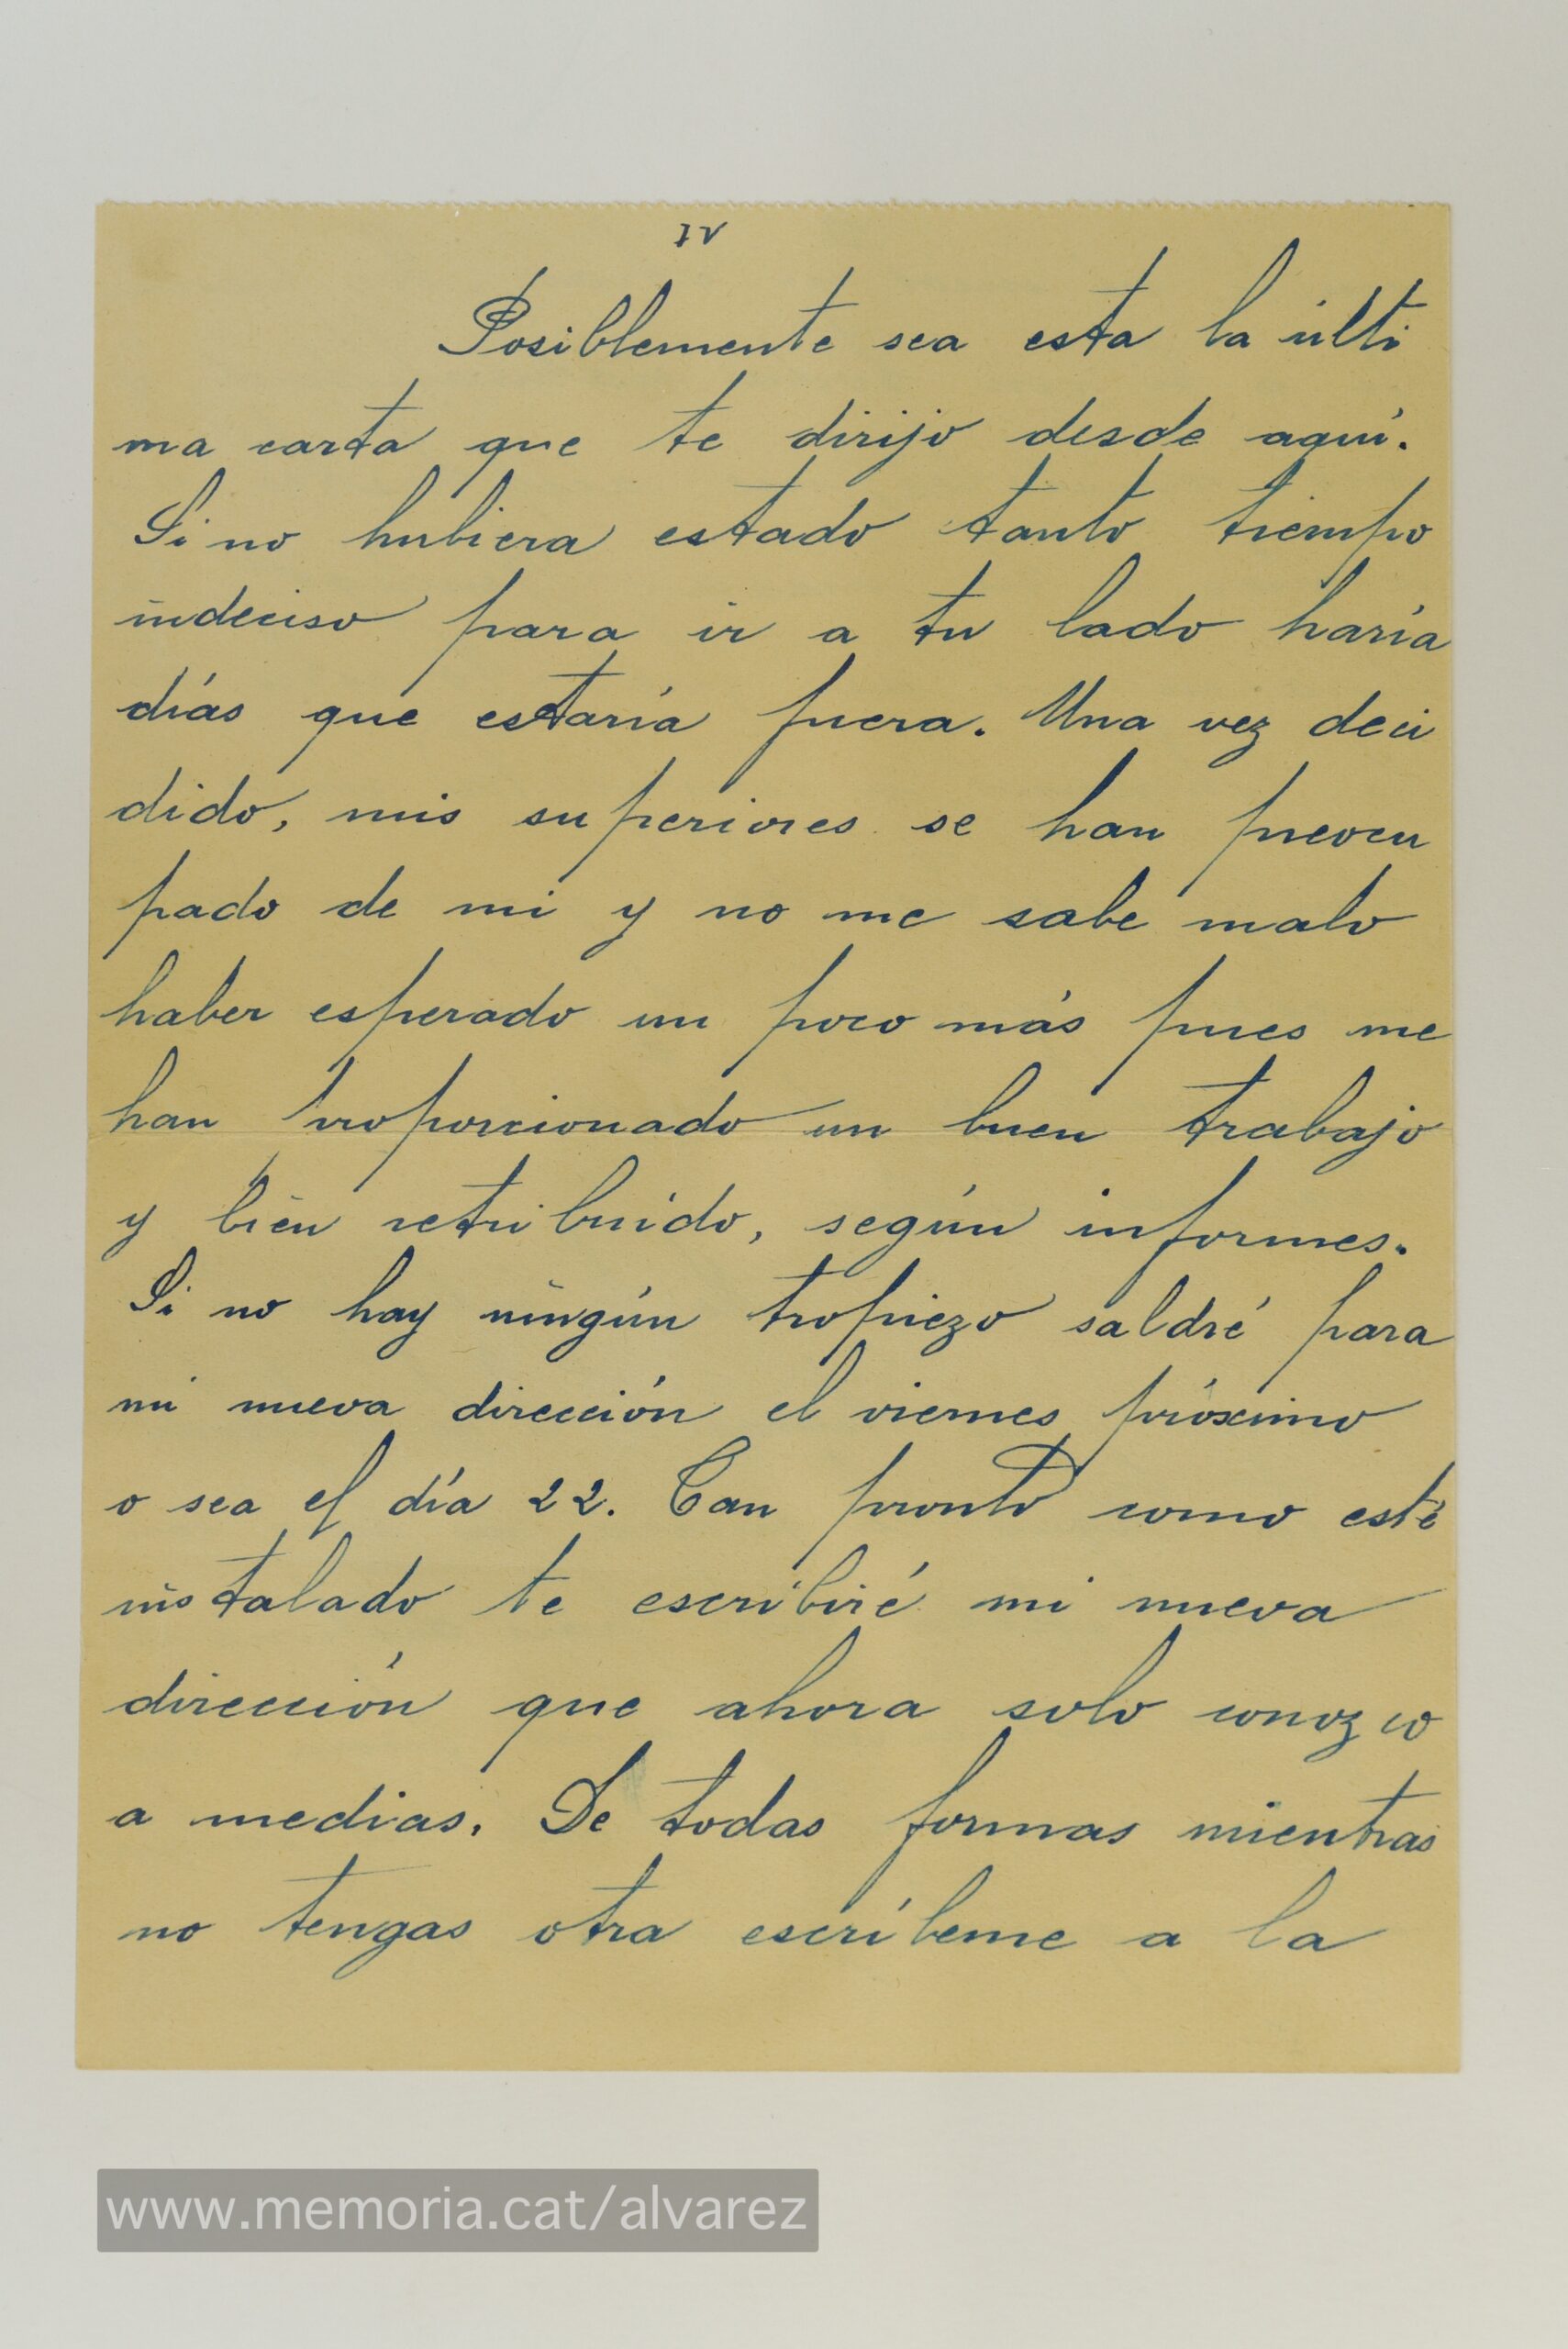 IV
Posiblemente sea esta la últi
ma carta que te dirijo desde aquí.
Si no hubiera estado tanto tiempo
indeciso para ir a tu lado haría
días que estaría fuera. Una vez deci
dido, mis superiores se han preocu
pado de mi y no me sabe malo
haber esperado un poco más pues me
han proporcionado un buen trabajo
y bien retribuído, según informes.
Si no hay ningún tropiezo saldré para
mi nueva dirección el viernes próximo
o sea el día 22. Tan pronto como esté
instalado te escribiré mi nueva
dirección que ahora solo conozco
a medias. De todas formas mientras
no tengas otra escríbeme a la
www.memoria.cat/alvarez